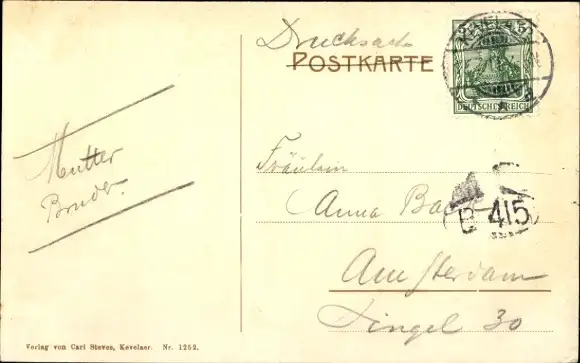 Drucksache
POSTKARTE
KEVELAER
DEUTSCHES REICH
Mutter
Bruder.
Fräulein
Anna
415
Amsterdam
Singel 30
Verlag von Carl Steves, Kevelaer. Nr. 1252.